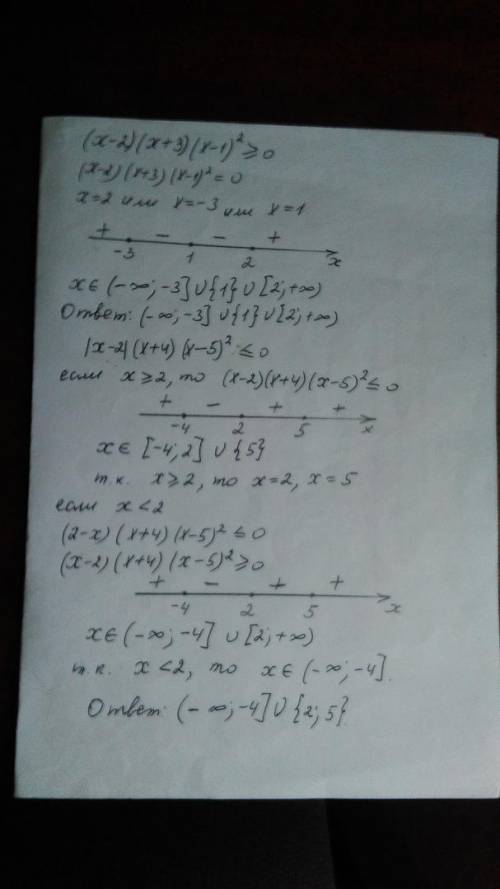 (x-2)(x+3)(x-1)² ≥ 0
(x-2)(x+3)(x-1)² = 0
x=2 или x=-3 или x=1
+ - - +
-3 1 2 x
x∈(-∞;-3]∪{1}∪[2;+∞)
Ответ: (-∞;-3]∪{1}∪[2;+∞)
|x-2|(x+4)(x-5)² ≤ 0
если x≥2, то (x-2)(x+4)(x-5)² ≤ 0
+ - + +
-4 2 5 x
x∈ [-4;2] ∪{5}
т.к. x≥2, то x=2, x=5
если x<2
(2-x)(x+4)(x-5)² ≤ 0
(x-2)(x+4)(x-5)² ≥ 0
+ - + +
-4 2 5 x
x∈(-∞;-4] ∪[2;+∞)
т.к. x<2, то x∈(-∞;-4].
Ответ: (-∞;-4]∪{2;5}